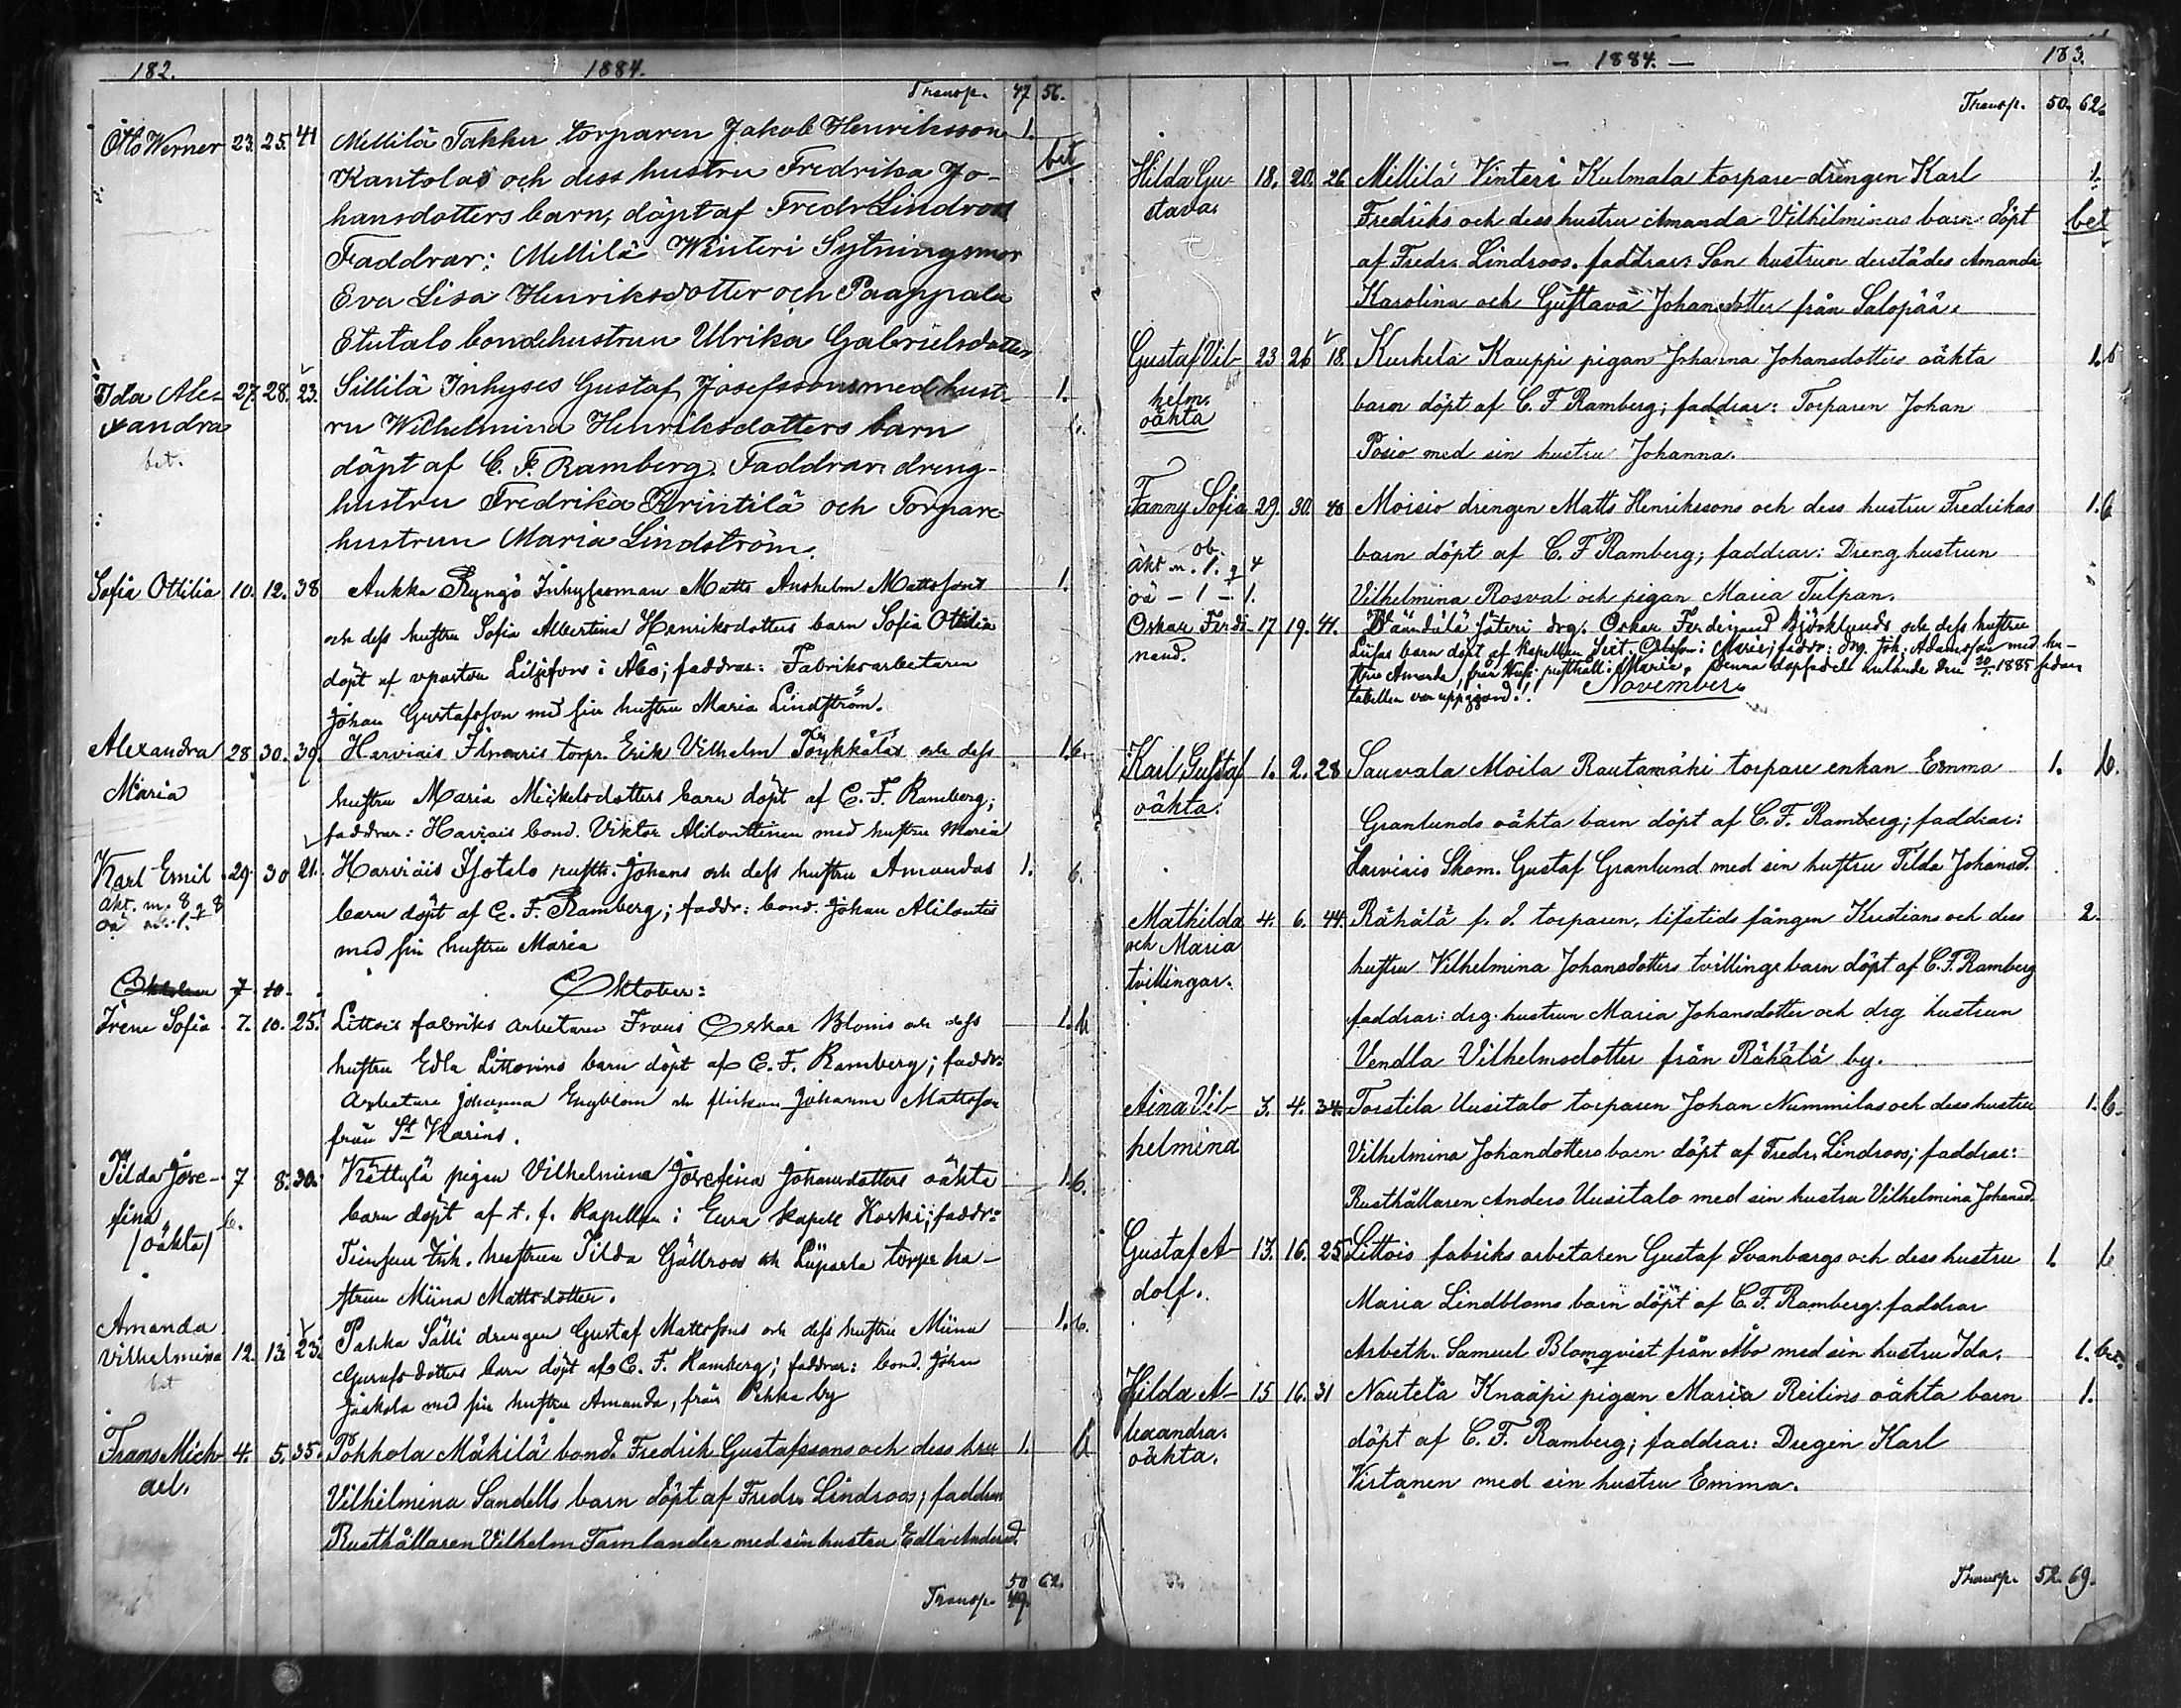 182. 1884.
Transp. 47 56.
Otto Werner 23. 25. 41 Mellilä Takku torparen Jakob Henriksson 1.
Kantolas och dess hustru Fredrika Jo- bet
hansdotters barn, döpt af Fredr Lindroos
Faddrar: Mellilä Winteri Sytningsmor
Eva Lisa Henriksdotter och Paappala
Etutalo bondehustrun Ulrika Gabrielsdotter
Ida Ale- 27. 28. 23. Sillilä Inhyses Gustaf Josefssons med hust- 1.
xandra ru Wilhelmina Henriksdotters barn b.
bet. döpt af C. F. Ramberg. Faddrar dreng-
hustru Fredrika Krintilä och Torpare
hustrun Maria Lindström.
Sofia Ottilia 10. 12. 38 Aukka Ryngö Inhysesman Matts Anshelm Mattssons 1.
och dess hustru Sofia Albertina Henriksdotters barn Sofia Ottilia
döpt af vpastor Liljefors i Åbo; faddrar: Fabriksarbetaren
Johan Gustafsson med sin hustru Maria Lindström.
Alexandra 28 30. 39. Harviais Ilmaris torpr. Erik Vilhelm Töykkäläs och dess 1. b.
Maria hustru Maria Mickelsdotters barn döpt af C. F. Ramberg;
faddrar: Harviais bond. Viktor Alilonttinen med hustru Maria
Karl Emil 29. 30 21. Harviais Isotalo rusth. Johans och dess hustru Amandas 1. b.
äkt. m. 8 q 8 barn döpt af C. F. Ramberg; faddr: bond. Johan Alilontis
oä m. 1. med sin hustru Maria
7. 10. Oktober:
Irene Sofia 7. 10. 25. Littois fabriks arbetaren Frans Oskar Bloms och dess 1. b
hustru Edla Littonins barn döpt af C. F. Ramberg; faddr:
Arbetare Johanna Engblom och flickan Johanna Mattsson
från St Karins.
Tilda Jose- 7 8. 30. Kättylä pigan Vilhelmina Josefina Johansdotters oäkta 1. b.
fina b. barn döpt af t. f. Kapellan i Eura Kapell Koski; faddr:
(oäkta) Tiensuu Inh. hustrun Tilda Gällroos och Liiparla torpr hu-
strun Miina Mattsdotter.
Amanda 1. b.
Vilhelmina 12. 13. 23. Pahka Sälli drengen Gustaf Mattssons och dess hustru Miina
bet Gustafsdotters barn döpt af C. F. Ramberg; faddrar: bond. Johan
Jaakola med sin hustru Amanda, från Pahka by
Frans Mich- 4. 5. 35. Pohhola Mäkilä bond. Fredrik Gustafssons och dess hru 1. b
ael. Vilhelmina Sandells barn döpt af Fredr. Lindroos; faddrar
Rusthållaren Vilhelm Tamlander med sin hustru Edla Andersd.
50 62.
Transp. 49.
– 1884. – 183.
Transp. 50. 62.
Hilda Gu- 18. 20. 26 Millilä Vinteri Kulmala torpare-drengen Karl 1.
stava. Fredriks och dess hustru Amanda Vilhilminas barn döpt bet
af Fredr. Lindroos. faddrar: Son hustrun derstädes Amanda
Karolina och Gustava Johansdotter från Salopää.
Gustaf Vil- 23 26 18. Kurkela Kauppi pigan Johanna Johansdotters oäkta 1. b
helm. barn döpt af C. F Ramberg; faddrar: Torparen Johan
oäkta Posio med sin hustru Johanna.
Fanny Sofia 29. 30. 40 Moisio drengen Matts Henrikssons och dess hustru Fredrikas 1. b
ob. barn döpt af C. F Ramberg; faddrar: Dreng hustrun
äkt m. 1. q 4
oä – 1 – 1. Vilhelmina Rosval och pigan Maria Tulpan.
Oskar Ferdi- 17 19. 41. Väändälä säteri drg. Oskar Ferdinand Björklunds och dess hustru
nand. Lisas barn döpt af Kapellan i Marie; faddr: drg. Joh. Adamsson med hu-
stru Amanda, från i Marie, denna dopsedel anlände den 20/1. 1885 sedan
tabellen var uppgjord.! November.
Karl Gustaf 1. 2. 28 Sauvala Moila Rautamäki torpare enkan Emma 1. b.
oäkta. Granlunds oäkta barn döpt af C. F. Ramberg; faddrar:
Harviais Skom. Gustaf Granlund med sin hustru Tilda Johansd.
Mathilda 4. 6. 44. Rähälä f. d. torparen, lifstids fången Kristians och dess 2.
och Maria hustru Vilhelmina Johansdotters tvillinge barn döpt af C. F. Ramberg
tvillingar. faddrar: drg. hustrun Maria Johansdotter och drg hustrun
Vendla Vilhelmsdotter från Rähälä by.
Aina Vil- 3. 4. 34. Torstila Uusitalo torparen Johan Nummilas och dess hustru 1. b.
helmina Vilhelmina Johandotters barn döpt af Fredr. Lindroos; faddrar:
Rusthållaren Anders Uusitalo med sin hustru Vilhelmina Johansd.
Gustaf A- 13. 16. 25 Littois fabriks arbetaren Gustaf Svanbergs och dess hustru 1. b
dolf. Maria Lindbloms barn döpt af C. F. Ramberg. faddrar
Arbeth. Samuel Blomqvist från Åbo med sin hustru Ida. 1. bet.
Hilda A- 15 16. 31 Nautela Knaapi pigan Maria Reilins oäkta barn 1.
lexandra. döpt af C. F. Ramberg; faddrar: Dregen Karl
oäkta. Virtanen med sin hustru Emma.
Transp. 52. 69.